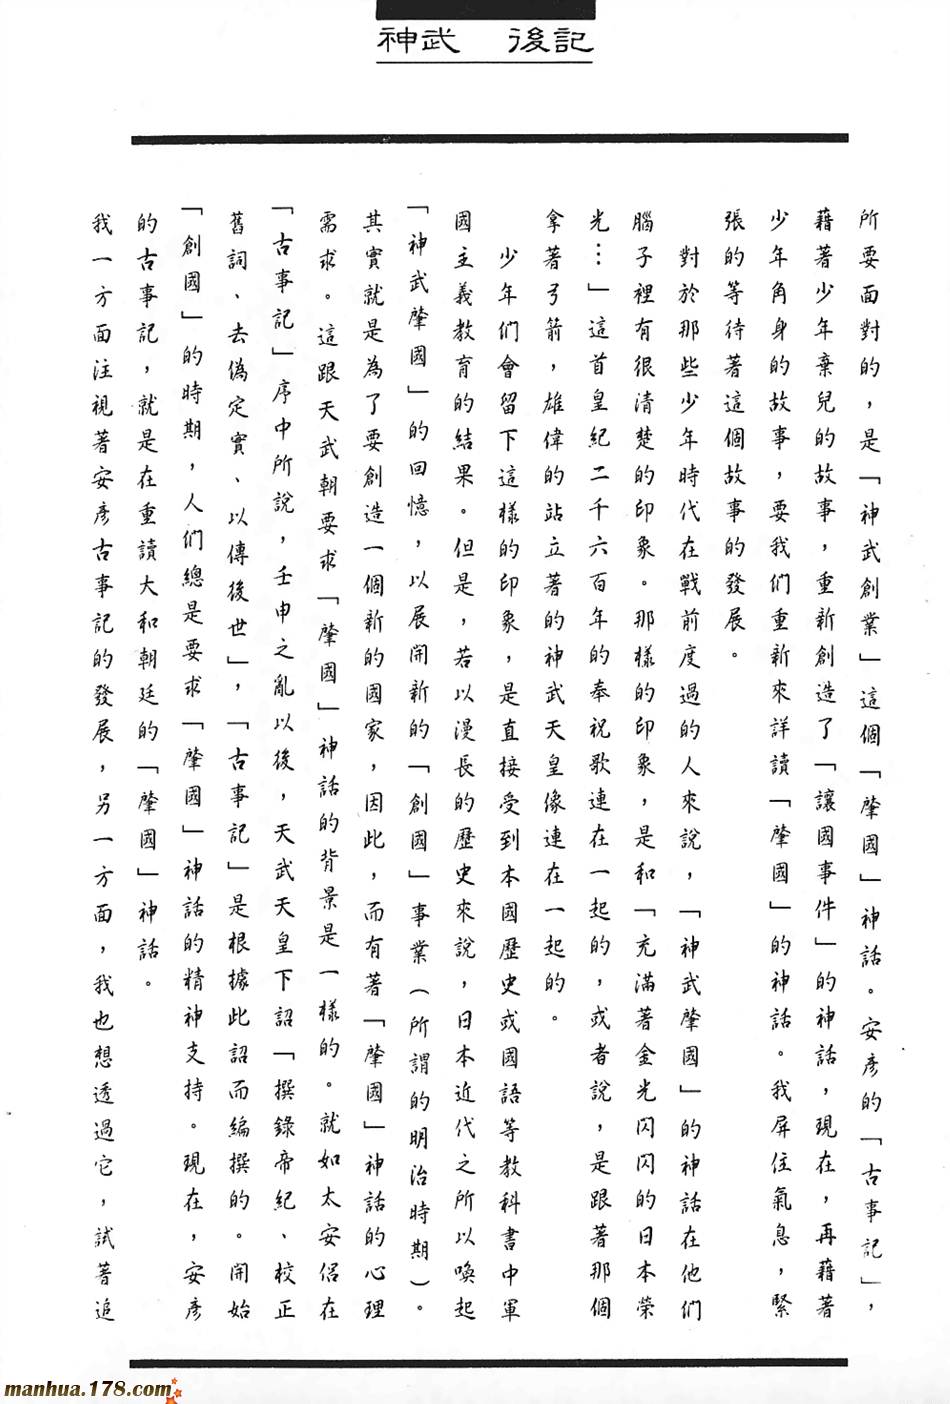 神武 後記
所要面對的，是「神武創業」這個「肇國」神話。安彥的「古事記」，
藉著少年棄兒的故事，重新創造了「讓國事件」的神話，現在，再藉著
少年角身的故事，要我們重新來詳讀「肇國」的神話。我屏住氣息，緊
張的等待著這個故事的發展。
對於那些少年時代在戰前度過的人來說，「神武肇國」的神話在他們
腦子裡有很清楚的印象。那樣的印象，是和「充滿著金光閃閃的日本榮
光…」這首皇紀二千六百年的奉祝歌連在一起的，或者說，是跟著那個
拿著弓箭，雄偉的站立著的神武天皇像連在一起的。
少年們會留下這樣的印象，是直接受到本國歷史或國語等教科書中軍
國主義教育的結果。但是，若以漫長的歷史來說，日本近代之所以喚起
「神武肇國」的回憶，以展開新的「創國」事業（所謂的明治時期）。
其實就是為了要創造一個新的國家，因此，而有著「肇國」神話的心理
需求。這跟天武朝要求「肇國」神話的背景是一樣的。就如太安侶在
「古事記」序中所說，壬申之亂以後，天武天皇下詔「撰錄帝紀、校正
舊詞、去偽定實、以傳後世」，「古事記」是根據此詔而編撰的。開始
「創國」的時期，人們總是要求「肇國」神話的精神支持。現在，安彥
的古事記，就是在重讀大和朝廷的「肇國」神話。
我一方面注視著安彥古事記的發展，另一方面，我也想透過它，試著追
manhua.178.com